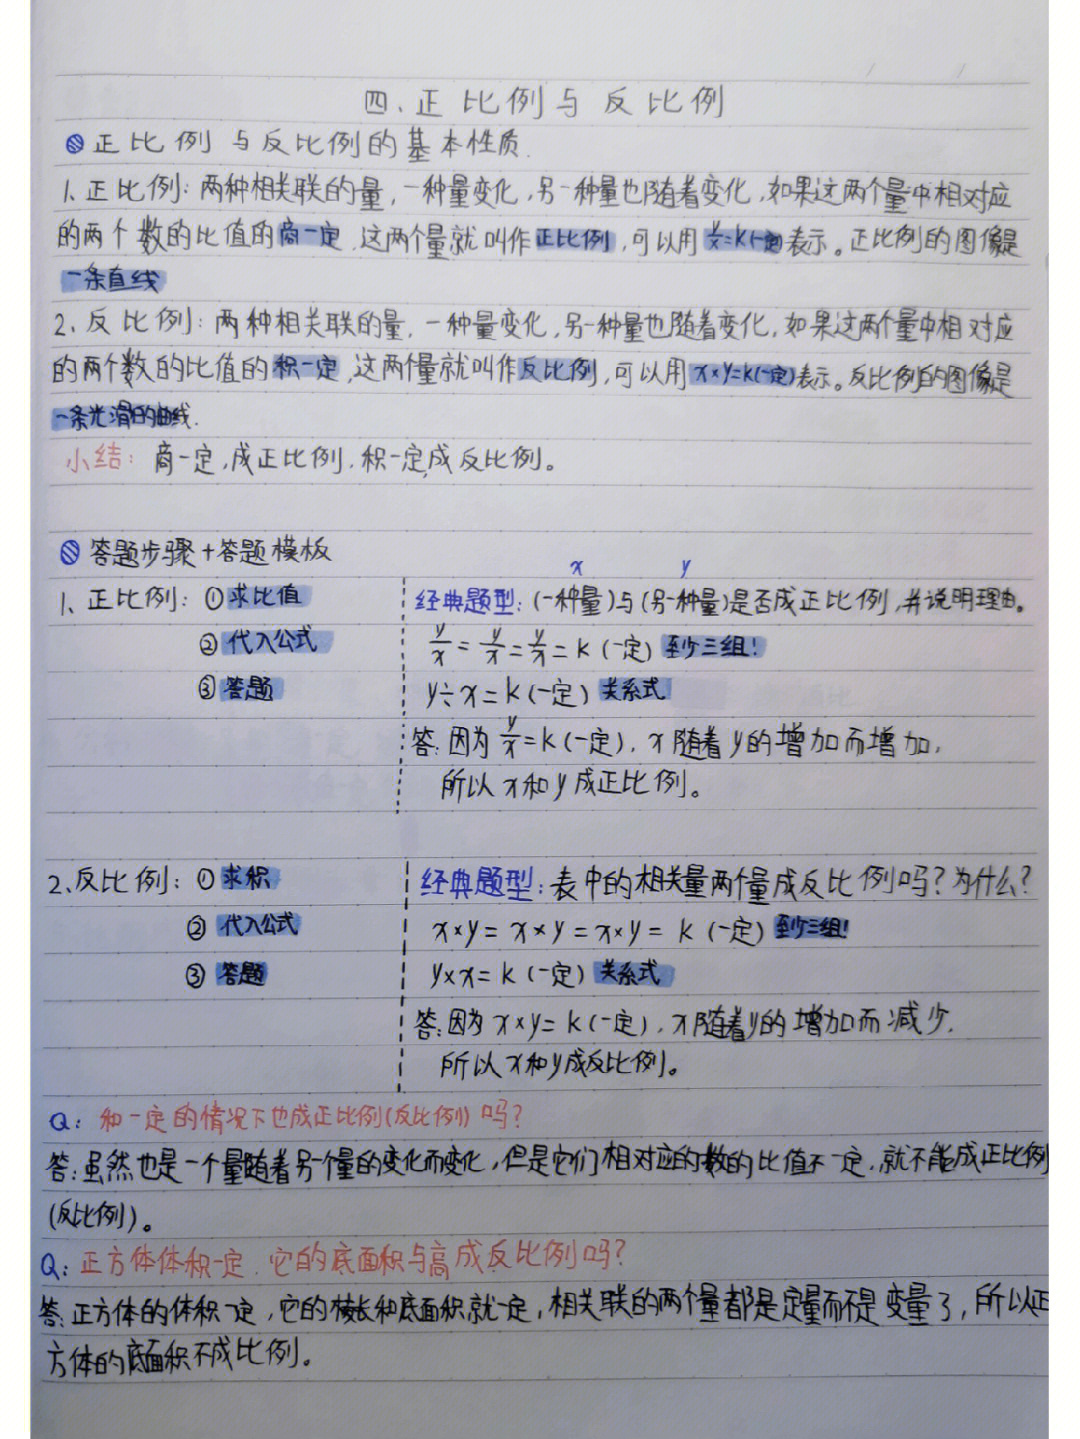 四、正比例与反比例
正比例与反比例的基本性质.
1、正比例：两种相关联的量，一种量变化，另一种量也随着变化，如果这两个量中相对应
的两个数的比值的商一定，这两个量就叫作正比例，可以用y/x=k(一定)表示。正比例的图像是
一条直线
2、反比例：两种相关联的量，一种量变化，另一种量也随着变化，如果这两个量中相对应
的两个数的比值的积一定，这两个量就叫作反比例，可以用x×y=k(一定)表示。反比例的图像是
一条光滑的曲线.
小结：商一定，成正比例，积一定，成反比例。
答题步骤+答题模板
x y
1、正比例：①求比值 经典题型：(一种量)与(另一种量)是否成正比例，并说明理由。
②代入公式 y/x=y/x=y/x=k(一定)至少三组！
③答题 y÷x=k(一定)关系式
答：因为y/x=k(一定)，x随着y的增加而增加，
所以x和y成正比例。
2、反比例：①求积 经典题型：表中的相关量两个量成反比例吗？为什么？
②代入公式 x×y=x×y=x×y=k(一定)至少三组！
③答题 y×x=k(一定)关系式
答：因为x×y=k(一定)，x随着y的增加而减少.
所以x和y成反比例。
Q：和一定的情况下也成正比例(反比例)吗？
答：虽然也是一个量随着另一个量的变化而变化，但是它们相对应的数的比值不一定，就不能成正比例
(反比例)。
Q：正方体体积一定，它的底面积与高成反比例吗？
答：正方体的体积一定，它的棱长和底面积就一定，相关联的两个量都是定量而不是变量了，所以正
方体的底面积不成比例。